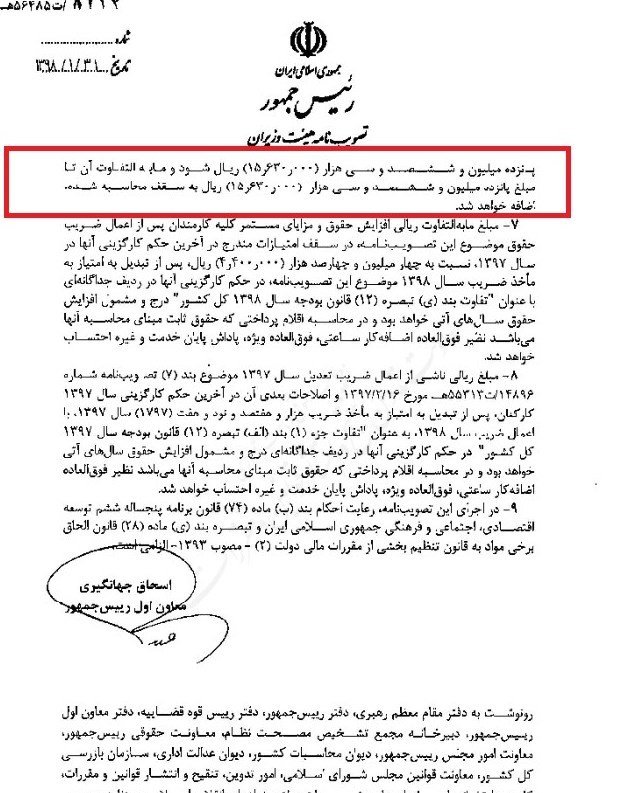 ۸۲۱۲/ت۵۶۴۸۵هـ
شماره
تاریخ ۱۳۹۸/۱/۳۱
جمهوری اسلامی ایران
رئیس جمهور
تصویب نامه هیئت وزیران
پانزده میلیون و ششصد و سی هزار (۱۵٫۶۳۰٫۰۰۰) ریال شود و مابه التفاوت آن تا
مبلغ پانزده میلیون و ششصد و سی هزار (۱۵٫۶۳۰٫۰۰۰) ریال به سقف محاسبه شده،
اضافه خواهد شد.
۷- مبلغ مابه‌التفاوت ریالی افزایش حقوق و مزایای مستمر کلیه کارمندان پس از اعمال ضریب
حقوق موضوع این تصویب‌نامه، در سقف امتیازات مندرج در آخرین حکم کارگزینی آنها در
سال ۱۳۹۷، نسبت به چهار میلیون و چهارصد هزار (۴٫۴۰۰٫۰۰۰) ریال، پس از تبدیل به امتیاز به
مأخذ ضریب سال ۱۳۹۸ موضوع این تصویب‌نامه، در حکم کارگزینی آنها در ردیف جداگانه‌ای
با عنوان "تفاوت بند (ی) تبصره (۱۲) قانون بودجه سال ۱۳۹۸ کل کشور" درج و مشمول افزایش
حقوق سال‌های آتی خواهد بود و در محاسبه اقلام پرداختی که حقوق ثابت مبنای محاسبه آنها
می‌باشد نظیر فوق‌العاده اضافه‌کار ساعتی، فوق‌العاده ویژه، پاداش پایان خدمت و غیره احتساب
خواهد شد.
۸- مبلغ ریالی ناشی از اعمال ضریب تعدیل سال ۱۳۹۷ موضوع بند (۷) تصویب‌نامه شماره
۱۴۸۹۶/ت۵۵۳۱۳هـ مورخ ۱۳۹۷/۲/۱۶ و اصلاحات بعدی آن در آخرین حکم کارگزینی سال ۱۳۹۷
کارکنان، پس از تبدیل به امتیاز به مأخذ ضریب هزار و هفتصد و نود و هفت (۱۷۹۷) سال ۱۳۹۷، با
اعمال ضریب سال ۱۳۹۸، به عنوان "تفاوت جزء (۱) بند (الف) تبصره (۱۲) قانون بودجه سال ۱۳۹۷
کل کشور" در حکم کارگزینی آنها در ردیف جداگانه‌ای درج و مشمول افزایش حقوق سال‌های آتی
خواهد بود و در محاسبه اقلام پرداختی که حقوق ثابت مبنای محاسبه آنها می‌باشد نظیر فوق‌العاده
اضافه‌کار ساعتی، فوق‌العاده ویژه، پاداش پایان خدمت و غیره احتساب خواهد شد.
۹- در اجرای این تصویب‌نامه، رعایت احکام بند (ب) ماده (۷۴) قانون برنامه پنجساله ششم توسعه
اقتصادی، اجتماعی و فرهنگی جمهوری اسلامی ایران و تبصره بند (ی) ماده (۲۸) قانون الحاق
برخی مواد به قانون تنظیم بخشی از مقررات مالی دولت (۲) - مصوب ۱۳۹۳- الزامی است.
اسحاق جهانگیری
معاون اول رییس‌جمهور
رونوشت به دفتر مقام معظم رهبری، دفتر رییس‌جمهور، دفتر رییس قوه قضاییه، دفتر معاون اول
رییس‌جمهور، دبیرخانه مجمع تشخیص مصلحت نظام، معاونت حقوقی رییس‌جمهور،
معاونت امور مجلس رییس‌جمهور، دیوان محاسبات کشور، دیوان عدالت اداری، سازمان بازرسی
کل کشور، معاونت قوانین مجلس شورای اسلامی، امور تدوین، تنقیح و انتشار قوانین و مقررات،